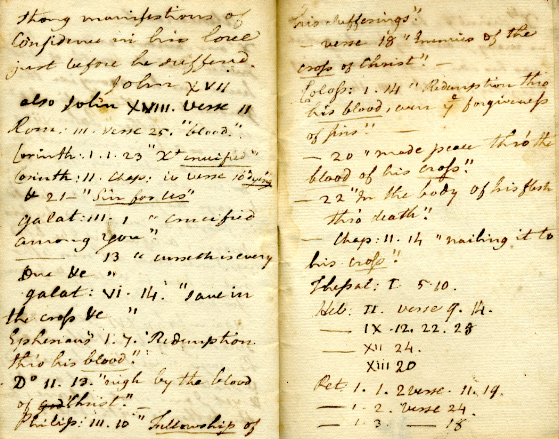 Strong manifestions of
Confidence in his love
just before he suffered.
John XVII
also John XVIII. verse 11
Rom: III. verse 25. "blood."
Corinth: 1. 1. 23 "Xt crucified"
Corinth: 11. Chap: iv verse 10 dying
& 21 — "Sin for us"
galat: III. 1 "crucified
among you"
— 13 "curseth is every
One &c"
galat: VI. 14. "save in
the cross &c"
Ephesians 1. 7. "Redemption
thro his blood".
Do 11. 13. "nigh by the blood
of Christ."
Philip: III. 10 "Fellowship of
his sufferings".
— verse 18 "Enemies of the
cross of Christ" —
Coloss: 1. 14 "Redemption thro
his blood, even ye forgiveness
of sins" —
— 20 "made peace thro the
blood of his cross".
— 22 "In the body of his flesh
thro death".
— Chap: 11. 14 "nailing it to
his cross".
Thessal: I. 5. 10.
Heb: II. verse 9. 14.
— IX. 12. 22. 28
— XII 24.
XIII 20
Pet. 1. 1. 2 verse. 11. 19.
— 1. 2. verse 24.
— 1. 3. — 18